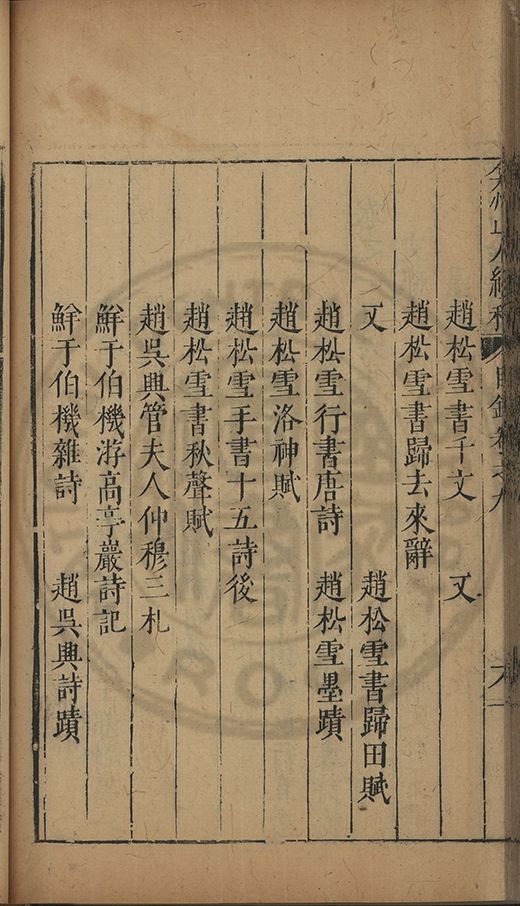 弇州山人續稿 目錄卷之九
趙松雪書千文 又
趙松雪書歸去來辭
又 趙松雪書歸田賦
趙松雪行書唐詩 趙松雪墨蹟
趙松雪洛神賦
趙松雪手書十五詩後
趙松雪書秋聲賦
趙吳興管夫人仲穆三札
鮮于伯機游高亭巖詩記
鮮于伯機雜詩 趙吳興詩蹟